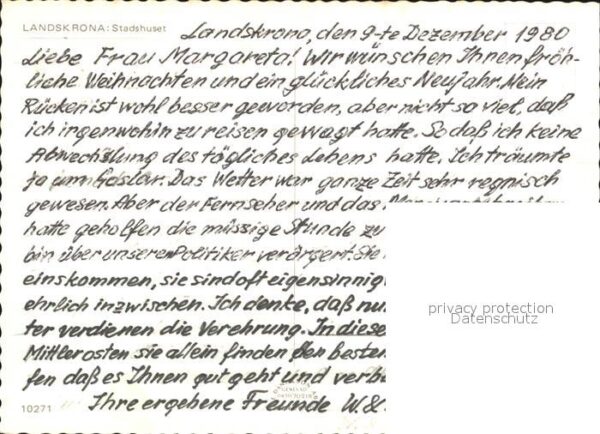 LANDSKRONA: Stadshuset
Landskrona, den 9-te Dezember 1980
Liebe Frau Margareta! Wir wünschen Ihnen fröh-
liche Weihnachten und ein glückliches Neujahr. Mein
Rücken ist wohl besser geworden, aber nicht so viel, daß
ich irgenwohin zu reisen gewagt hatte. So daß ich keine
Abwechslung des tögliches Lebens hatte. Ich träumte
ja um Goslar. Das Wetter war ganze Zeit sehr regnisch
gewesen. Aber der Fernseher und das
hatte geholfen die müssige Stunde zu
bin über unseren Politiker verärgert. Sie
einskommen, sie sind oft eigensinnig
ehrlich inzwischen. Ich denke, daß nu
ter verdienen die Verehrung. In diese
Mittlerosten sie allein finden den besten
fen daß es Ihnen gut geht und verb
Ihre ergebene Freunde W. &
10271
privacy protection
Datenschutz